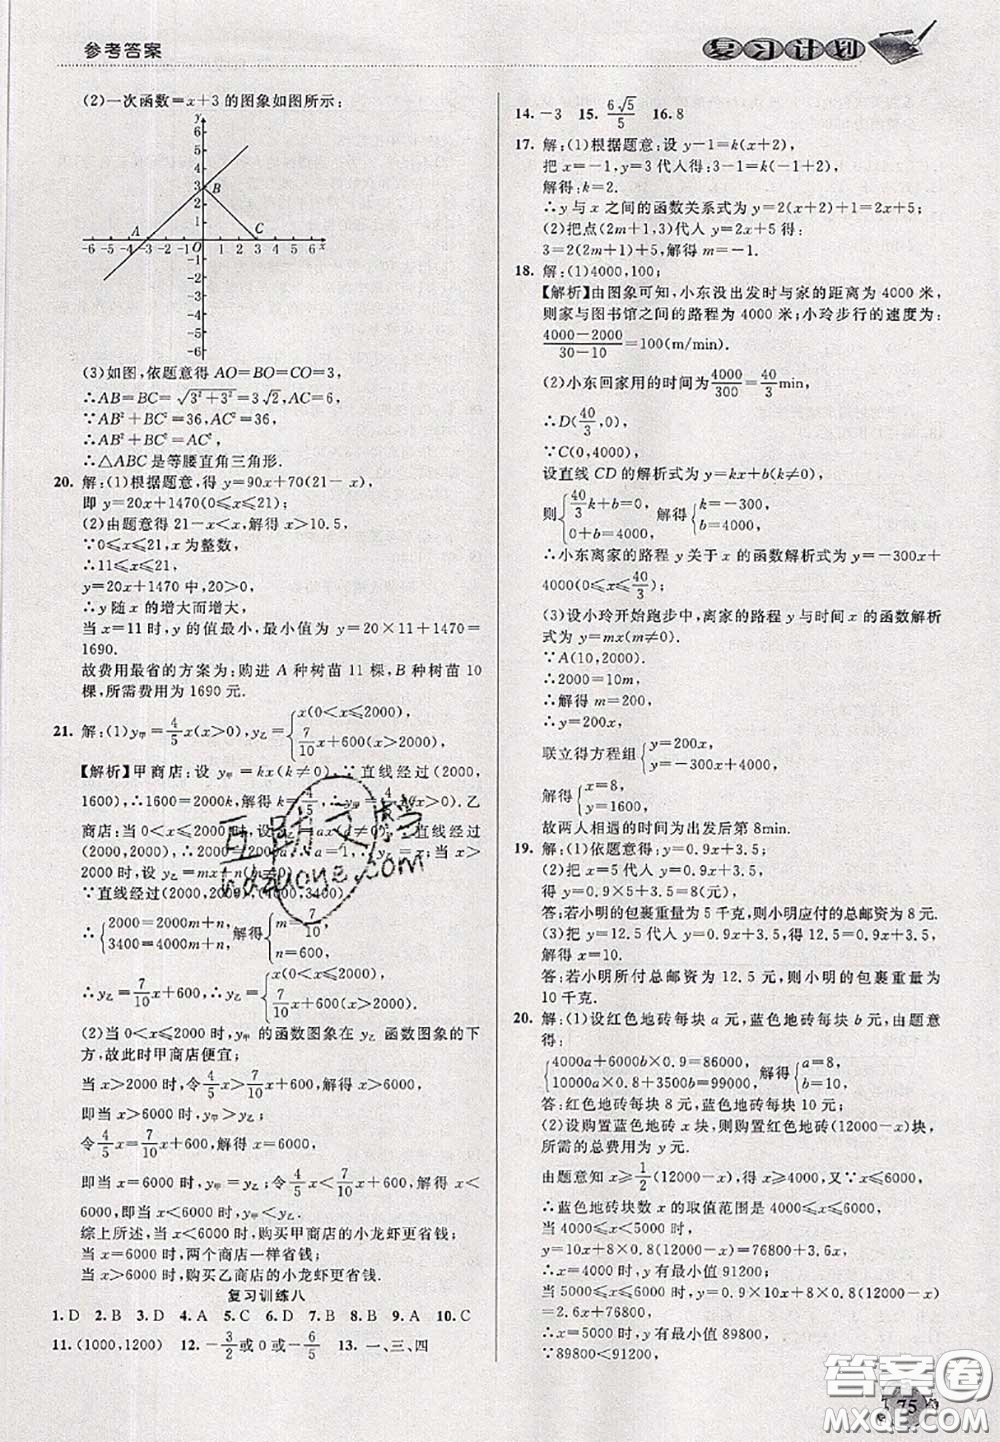 参考答案
复习计划
(2)一次函数=x+3的图象如图所示:
y
6
5
4
3 B
2
1
A C
-6 -5 -4 -3 -2 -1 O 1 2 3 4 5 6 x
-1
-2
-3
-4
-5
-6
(3)如图,依题意得 AO=BO=CO=3,
∴AB=BC=√(3²+3²)=3√2,AC=6,
∵AB²+BC²=36,AC²=36,
∴AB²+BC²=AC²,
∴△ABC是等腰直角三角形.
20. 解:(1)根据题意,得 y=90x+70(21-x),
即 y=20x+1470(0⩽x⩽21);
(2)由题意得21-x<x,解得 x>10.5,
∵0⩽x⩽21,x为整数,
∴11⩽x⩽21,
y=20x+1470中,20>0,
∴y随x的增大而增大,
当x=11时,y的值最小,最小值为 y=20×11+1470=
1690.
故费用最省的方案为:购进A种树苗11棵,B种树苗10
棵,所需费用为1690元.
21. 解:(1)y甲=4/5x(x>0),y乙={x(0<x⩽2000), 7/10x+600(x>2000),
【解析】甲商店:设 y甲=kx(k≠0),∵直线经过(2000,
1600),∴1600=2000k,解得k=4/5,∴y甲=4/5x(x>0).乙
商店:当0<x⩽2000时,设y乙=ax(a≠0),∵直线经过
(2000,2000),∴2000=2000a,∴a=1,∴y乙=x;当x>
2000时,设 y乙=mx+n(m≠0),
∵直线经过(2000,2000),(2000,3400),
∴{2000=2000m+n, 3400=4000m+n,解得{m=7/10, n=600,
∴y乙=7/10x+600,∴y乙={x(0<x⩽2000), 7/10x+600(x>2000);
(2)当0<x⩽2000时,y甲的函数图象在y乙函数图象的下
方,故此时甲商店便宜;
当x>2000时,令4/5x>7/10x+600,解得 x>6000,
即当x>6000时,y甲>y乙;
令4/5x=7/10x+600,解得 x=6000,
即当x=6000时,y甲=y乙;令4/5x<7/10x+600,解得x<
6000,即当x<6000时,y甲<y乙.
综上所述,当x<6000时,购买甲商店的小龙虾更省钱;
当x=6000时,两个商店一样省钱;
当x>6000时,购买乙商店的小龙虾更省钱.
复习训练八
1. D 2. B 3. D 4. A 5. C 6. D 7. B 8. B 9. A 10. C
11. (1000,1200) 12. -3/2或0或-6/5 13. 一、三、四
14. -3 15. 6√5/5 16. 8
17. 解:(1)根据题意:设 y-1=k(x+2),
把x=-1,y=3代入得:3-1=k(-1+2),
解得:k=2.
∴y与x之间的函数关系式为 y=2(x+2)+1=2x+5;
(2)把点(2m+1,3)代入 y=2x+5得:
3=2(2m+1)+5,解得 m=-1.
18. 解:(1)4000,100;
【解析】由图象可知,小东没出发时与家的距离为4000米,
则家与图书馆之间的路程为4000米;小玲步行的速度为:
(4000-2000)/(30-10)=100(m/min).
(2)小东回家用的时间为4000/300=40/3min,
∴D(40/3,0),
∵C(0,4000),
设直线CD的解析式为 y=kx+b(k≠0),
则{40/3k+b=0, 0+b=4000,解得{k=-300, b=4000,
∴小东离家的路程y关于x的函数解析式为 y=-300x+
4000(0⩽x⩽40/3);
(3)设小玲开始跑步中,离家的路程y与时间x的函数解析
式为 y=mx(m≠0).
∵A(10,2000),
∴2000=10m,
∴解得 m=200,
∴y=200x,
联立得方程组{y=200x, y=-300x+4000,
解得{x=8, y=1600,
故两人相遇的时间为出发后第8min.
19. 解:(1)依题意得:y=0.9x+3.5;
(2)把x=5代入 y=0.9x+3.5得,
y=0.9×5+3.5=8(元),
答:若小明的包裹重量为5千克,则小明应付的总邮资为8元.
(3)把y=12.5代入 y=0.9x+3.5得 12.5=0.9x+3.5,
解得 x=10.
答:若小明所付总邮资为12.5元,则小明的包裹重量为
10千克.
20. 解:(1)设红色地砖每块a元,蓝色地砖每块b元,由题意
得:
{4000a+6000b×0.9=86000, 10000a×0.8+3500b=99000,解得{a=8, b=10,
答:红色地砖每块8元,蓝色地砖每块10元.
(2)设购置蓝色地砖x块,则购置红色地砖(12000-x)块,
所需的总费用为y元.
由题意知 x⩾1/2(12000-x),得 x⩾4000,又∵x⩽6000,
∴蓝色地砖块数x的取值范围是4000⩽x⩽6000,
当4000⩽x<5000时,
y=10x+8×0.8(12000-x)=76800+3.6x,
∴x=4000时,y有最小值91200,
当5000⩽x⩽6000时,
=2.6x+76800,
∴x=5000时,y有最小值89800,
∵89800<91200,
75
互助文档
hazuone.com
答案圈
MXQE.COM